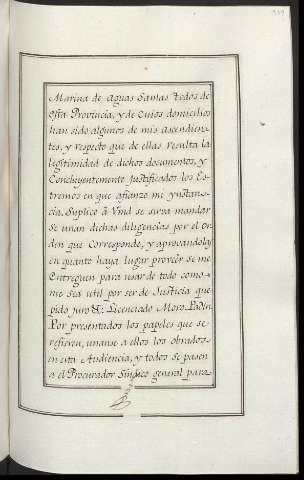 Marina de Aguas Santas todos de
esta Provincia, y de Cuios domicilios
han sido algunos de mis ascendien-
tes, y respecto que de ellas resulta la
legitimidad de dichos documentos, y
Concluyentemente justificados los Es-
tremos en que afianzo mi ynstan-
cia. Suplico â Vmd se sirva mandar
se unan dichas diligencias por el or-
den que Corresponde, y aprovandolas
en quanto haya lugar proveêr se me
Entreguen para usar de todo como
me sea util por ser de Justicia que
pido juro &: Licenciado Moro. Padin
Por presentados los papeles que se
refieren, unanse a ellos los obrados
en esta Audiencia, y todos se pasen
a el Procurador Síndico general para